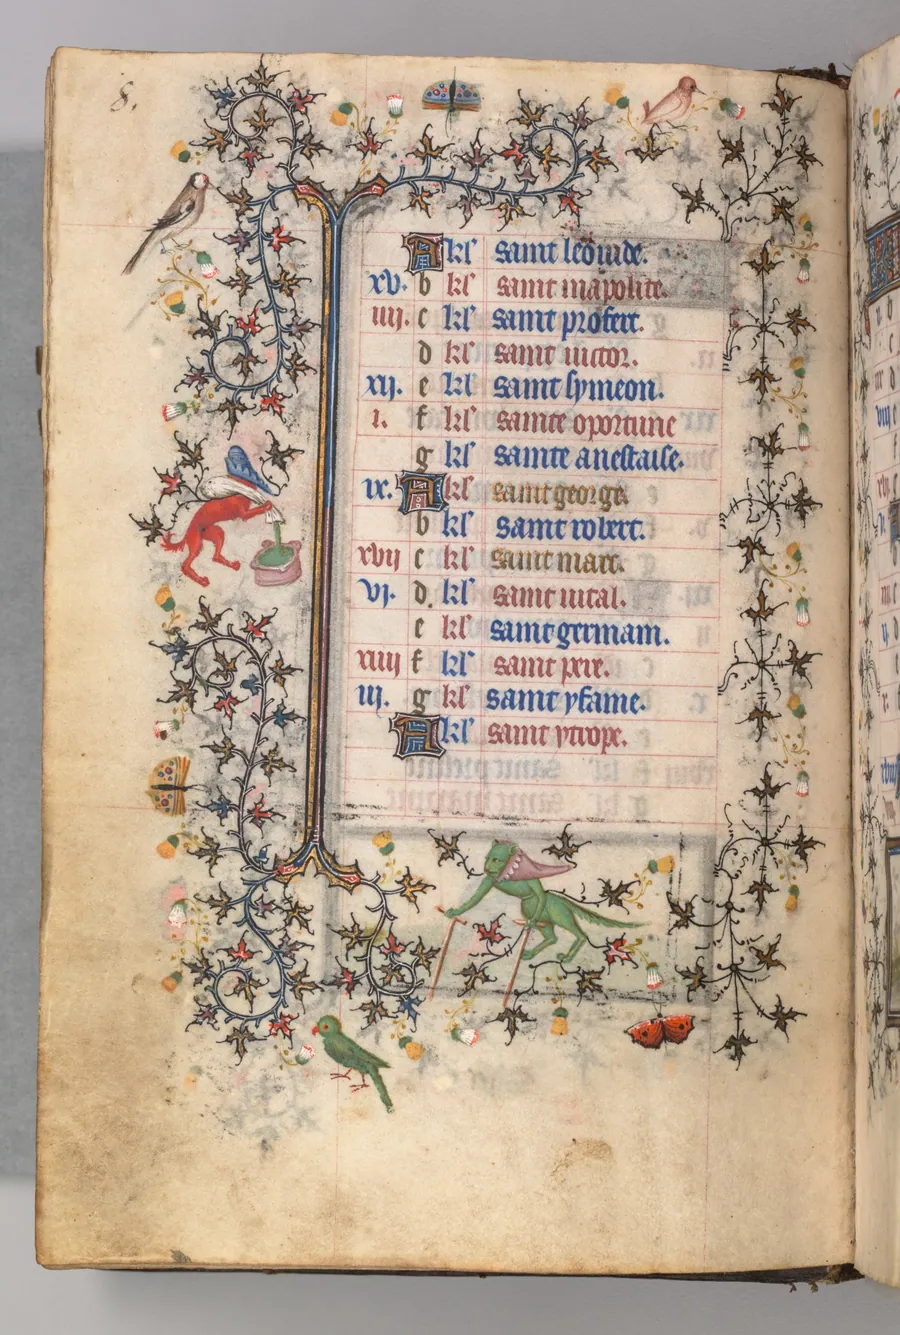 8.
A kl' saint leonide.
xv. b kl' saint mapolite.
iiij. c kl' saint profett.
d kl' saint victor.
xij. e kl' saint symeon.
i. f kl' sainte oportune
g kl' sainte anestaise.
ix. A kl' saint george.
b kl' saint robert.
xvij c kl' saint marc.
vj. d. kl' saint vital.
e kl' saint germain.
xiiij f kl' saint pere.
iij. g kl' saint yfame.
A kl' saint ytrope.